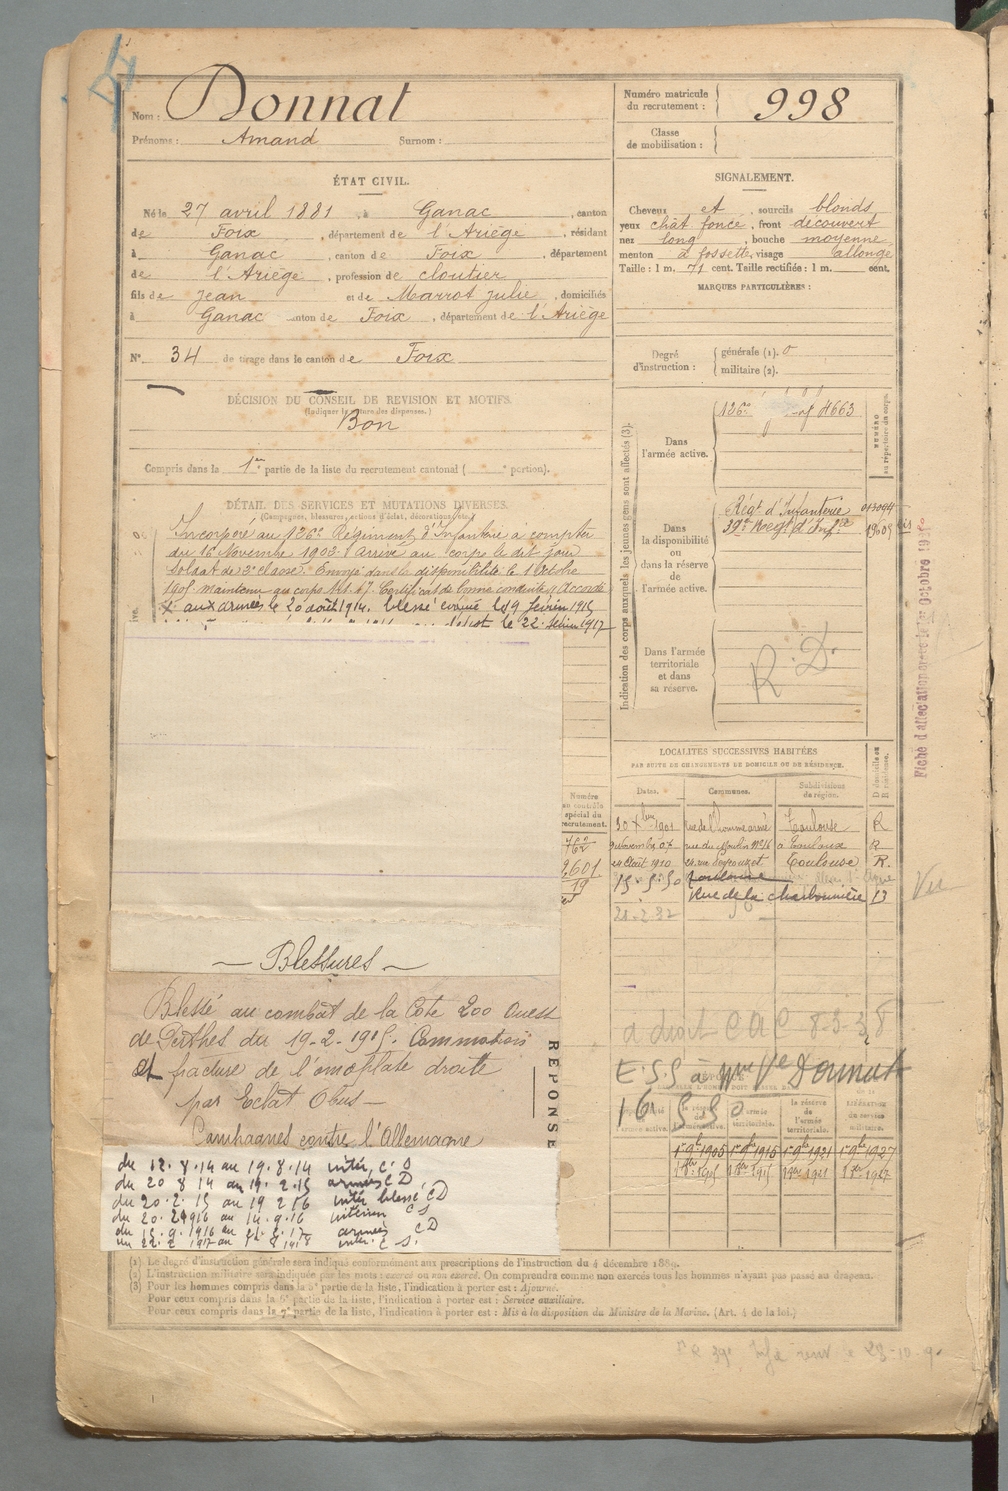 Nom : Donnat
Prénoms : Amand Surnom :
Numéro matricule
du recrutement : 998
Classe
de mobilisation :
ÉTAT CIVIL.
Né le 27 avril 1881, à Ganac, canton
de Foix, département de l'Ariège, résidant
à Ganac, canton de Foix, département
de l'Ariège, profession de cloutier
fils de Jean et de Marrot Julie, domiciliés
à Ganac canton de Foix, département de l'Ariège
N° 34 de tirage dans le canton de Foix
SIGNALEMENT.
Cheveux et, sourcils blonds
yeux chât foncé, front découvert
nez long, bouche moyenne
menton à fossette, visage allongé
Taille : 1 m. 71 cent. Taille rectifiée : 1 m. cent.
MARQUES PARTICULIÈRES :
Degré
d'instruction :
générale (1). 0
militaire (2).
DÉCISION DU CONSEIL DE REVISION ET MOTIFS.
(Indiquer la nature des dispenses.)
Bon
Compris dans la 1re partie de la liste du recrutement cantonal ( portion).
DÉTAIL DES SERVICES ET MUTATIONS DIVERSES.
(Campagnes, blessures, actions d'éclat, décorations, etc.)
Incorporé au 126e Régiment d'Infanterie à compter
du 16 Novembre 1902. Arrivé au corps le dit jour
soldat de 2e classe. Envoyé dans la disponibilité le 1 Octobre
1905 Certificat de bonne conduite Accordé
aux armées le 20 août 1914. blessé évacué le 19 février 1915
le 22 février 1917
Indication des corps auxquels les jeunes gens sont affectés (3).
Dans
l'armée active.
126e inf 4663
NUMÉRO
au répertoire du corps.
Dans
la disponibilité
ou
dans la réserve
de
l'armée active.
Régt d'Infanterie 013094
39e Régt d'Infie 19009 bis
Dans l'armée
territoriale
et dans
sa réserve.
R. D.
Fiche d'affectation
LOCALITÉS SUCCESSIVES HABITÉES
PAR SUITE DE CHANGEMENTS DE DOMICILE OU DE RÉSIDENCE.
Dates. Communes. Subdivisions
de région. D domicile ou
R résidence.
rue de l'homme armé Toulouse R
Novembre 07 rue du Moulin No 16 à Toulouse R
24 Août 1910 24 rue Toulouse R.
15-5-30 Toulouse
Rue de la charbonnière 13
21-2-32
Numéro
au contrôle
spécial du
recrutement.
762
2601
19
a droit C A C 8-3-38
E.S.S à Mme Ve Donnat
16 5 50
1er 9bre 1905 1er 9bre 1915 1er 9bre 1921 1er 9bre 1927
— Blessures —
Blessé au combat de la Côte 200 Ouest
de Perthes du 19-2-1915. Commotion
et fracture de l'omoplate droite
par Eclat Obus —
Campagnes contre l'Allemagne
RÉPONSE
du 12. 8. 14 au 19. 8. 14 intér. C. S
du 20 8 14 au 19. 2. 15 armées C D
du 20. 2. 15 au 19 2 16 intér blessé C D
du 20. 2 1916 au 14. 9. 16 intérieur C S
du 15. 9. 1916 au 21. 2. 17 armées C D
intér. C S.
(1) Le degré d'instruction générale sera indiqué conformément aux prescriptions de l'instruction du 4 décembre 1889.
(2) L'instruction militaire sera indiquée par les mots : exercé ou non exercé. On comprendra comme non exercés tous les hommes n'ayant pas passé au drapeau.
(3) Pour les hommes compris dans la 3e partie de la liste, l'indication à porter est : Ajourné.
Pour ceux compris dans la 5e partie de la liste, l'indication à porter est : Service auxiliaire.
Pour ceux compris dans la 7e partie de la liste, l'indication à porter est : Mis à la disposition du Ministre de la Marine. (Art. 4 de la loi.)